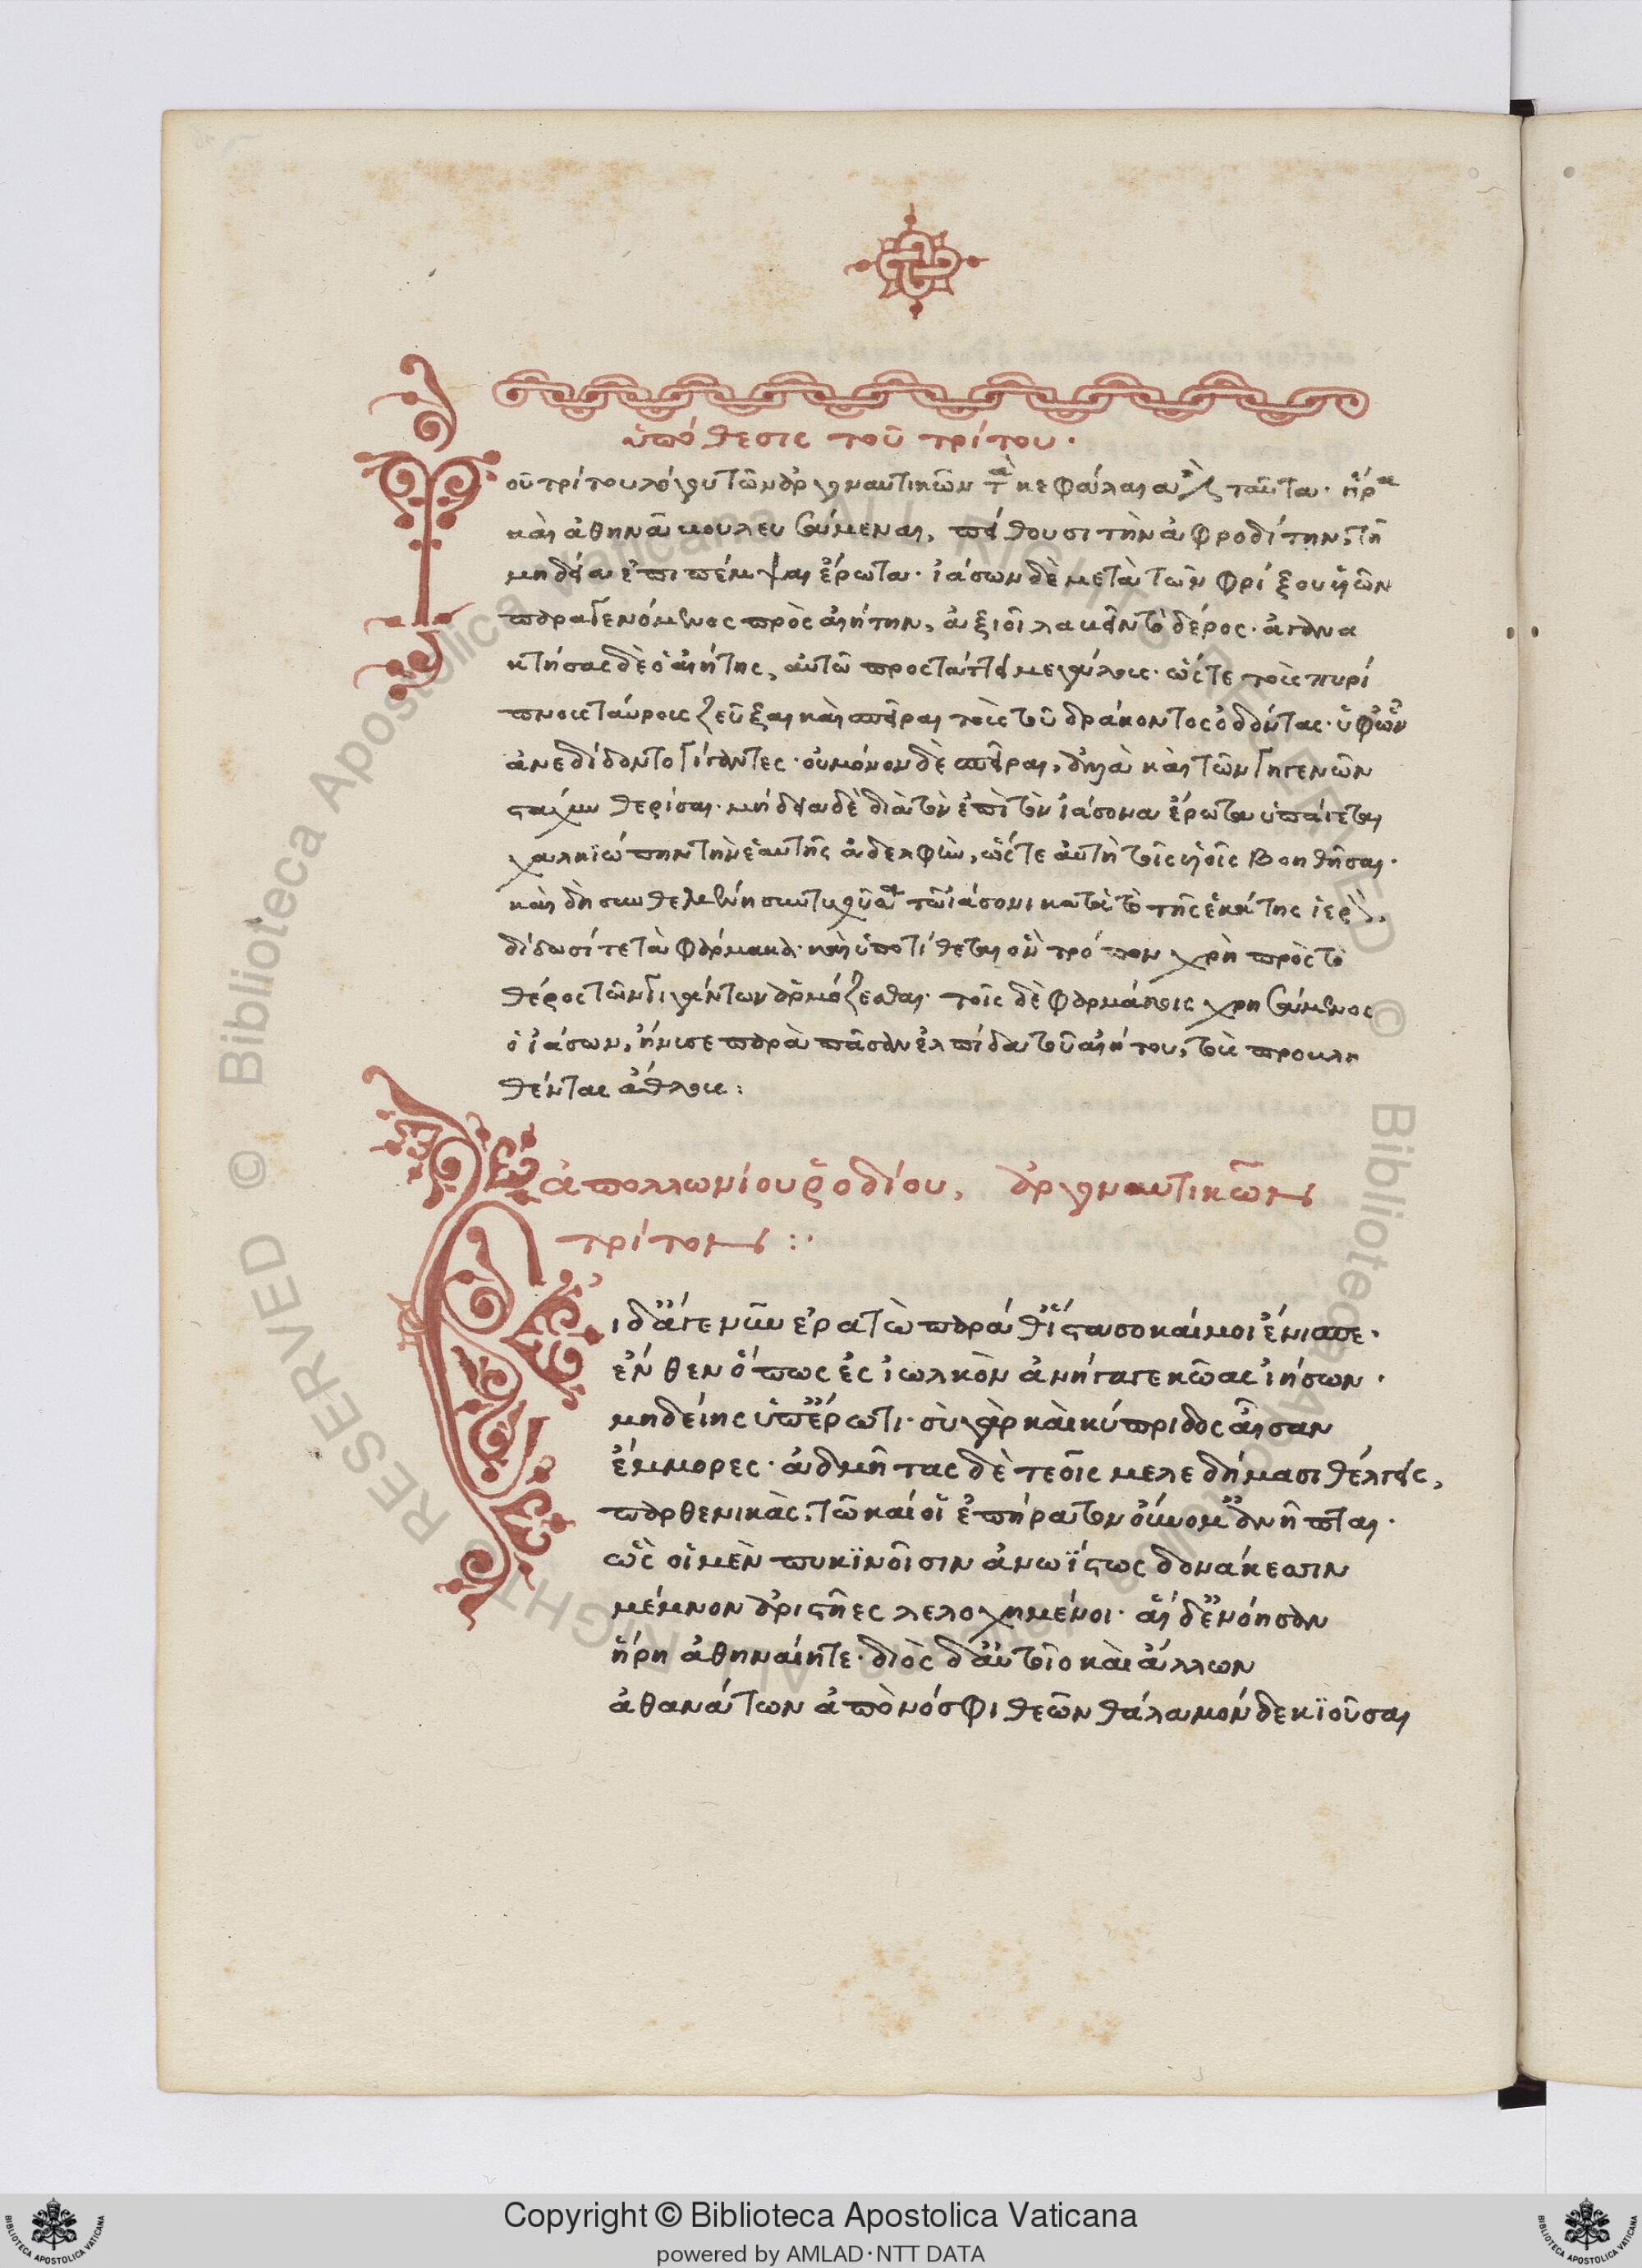 ὑπόθεσις τοῦ τρίτου·
Τοῦ τρίτου λόγου τῶν ἀργοναυτικῶν τὰ κεφάλαια ταῦτα· ἥρα
καὶ ἀθηνᾶ βουλευσάμεναι, πείθουσι τὴν ἀφροδίτην, τῇ
μηδεία ἐπιπέμψαι ἔρωτα· ἰάσων δὲ μετὰ τῶν φρίξου υἱῶν
παραγενόμενος πρὸς αἰήτην, ἀξιοῖ λαβεῖν τὸ δέρος· ἀγανα
κτήσας δὲ ὁ αἰήτης, αὐτῶ προστάττει μεγάλοις· ὥστε τοὶς πυρί
πνοις ταύροις ζεῦξαι καὶ σπεῖραι τοὶς τοῦ δράκοντος ὀδόντας· ὑφ' ὧν
ἀνεδίδοντο γίγαντες· οὐ μόνον δὲ σπεῖραι, ἀλλὰ καὶ τῶν γηγενῶν
στάχυν θερίσαι· μήδεια δὲ διὰ τὸν ἐπὶ τὸν ἰάσονα ἔρωτα ὑπάγεται
χαλκϊόπην τὴν ἑαυτῆς ἀδελφὴν, ὥστε αὐτὴ τοῖς υἱοῖς βοηθῆσαι·
καὶ δὴ συνθεμένη συντυχοῦσα τῶ ἰάσονι κατὰ τὸ τῆς ἑκάτης ἱερὸν,
δίδωσί τε τὰ φάρμακα· καὶ ὑποτίθεται ὃν τρόπον χρὴ πρὸς τὸ
θέρος τῶν γιγάντων ἁρμόζεσθαι· τοῖς δὲ φαρμάκοις χρησάμενος
ὁ ἰάσων, ἤνυσε παρὰ πᾶσαν ἐλπίδα τοῦ αἰήτου, τοὺς προκλη
θέντας ἄθλους:
ἀπολλωνίου ῥοδίου, ἀργοναυτικῶν
τρίτον:·
Εἰ δ' ἄγε νῦν ἐρατὼ παρά θ' ἵστασο καί μοι ἔνισπε·
ἔνθεν ὅπως ἐς ἰωλκὸν ἀνήγαγε κῶας ἰήσων·
μηδείης ὑπ' ἔρωτι· σὺ γὰρ καὶ κύπριδος αἶσαν
ἔμμορες· ἀδμῆτας δὲ τεοῖς μελεδήμασι θέλγεις,
παρθενικὰς, τῶ καί οἱ ἐπήρατον οὔνομ' ἀνῆπται·
ὣς οἱ μὲν πυκϊνοῖσιν ἀνωΐστως δονάκεσσιν
μέμνον ἀριστῆες λελοχημένοι· αἱ δ' ἐνόησαν
ἥρη ἀθηναίη τε· διὸς δ' αὐτοῖο καὶ ἄλλων
ἀθανάτων ἀπὸ νόσφι θεῶν θάλαμόν δε κϊοῦσαι
Copyright © Biblioteca Apostolica Vaticana
powered by AMLAD·NTT DATA